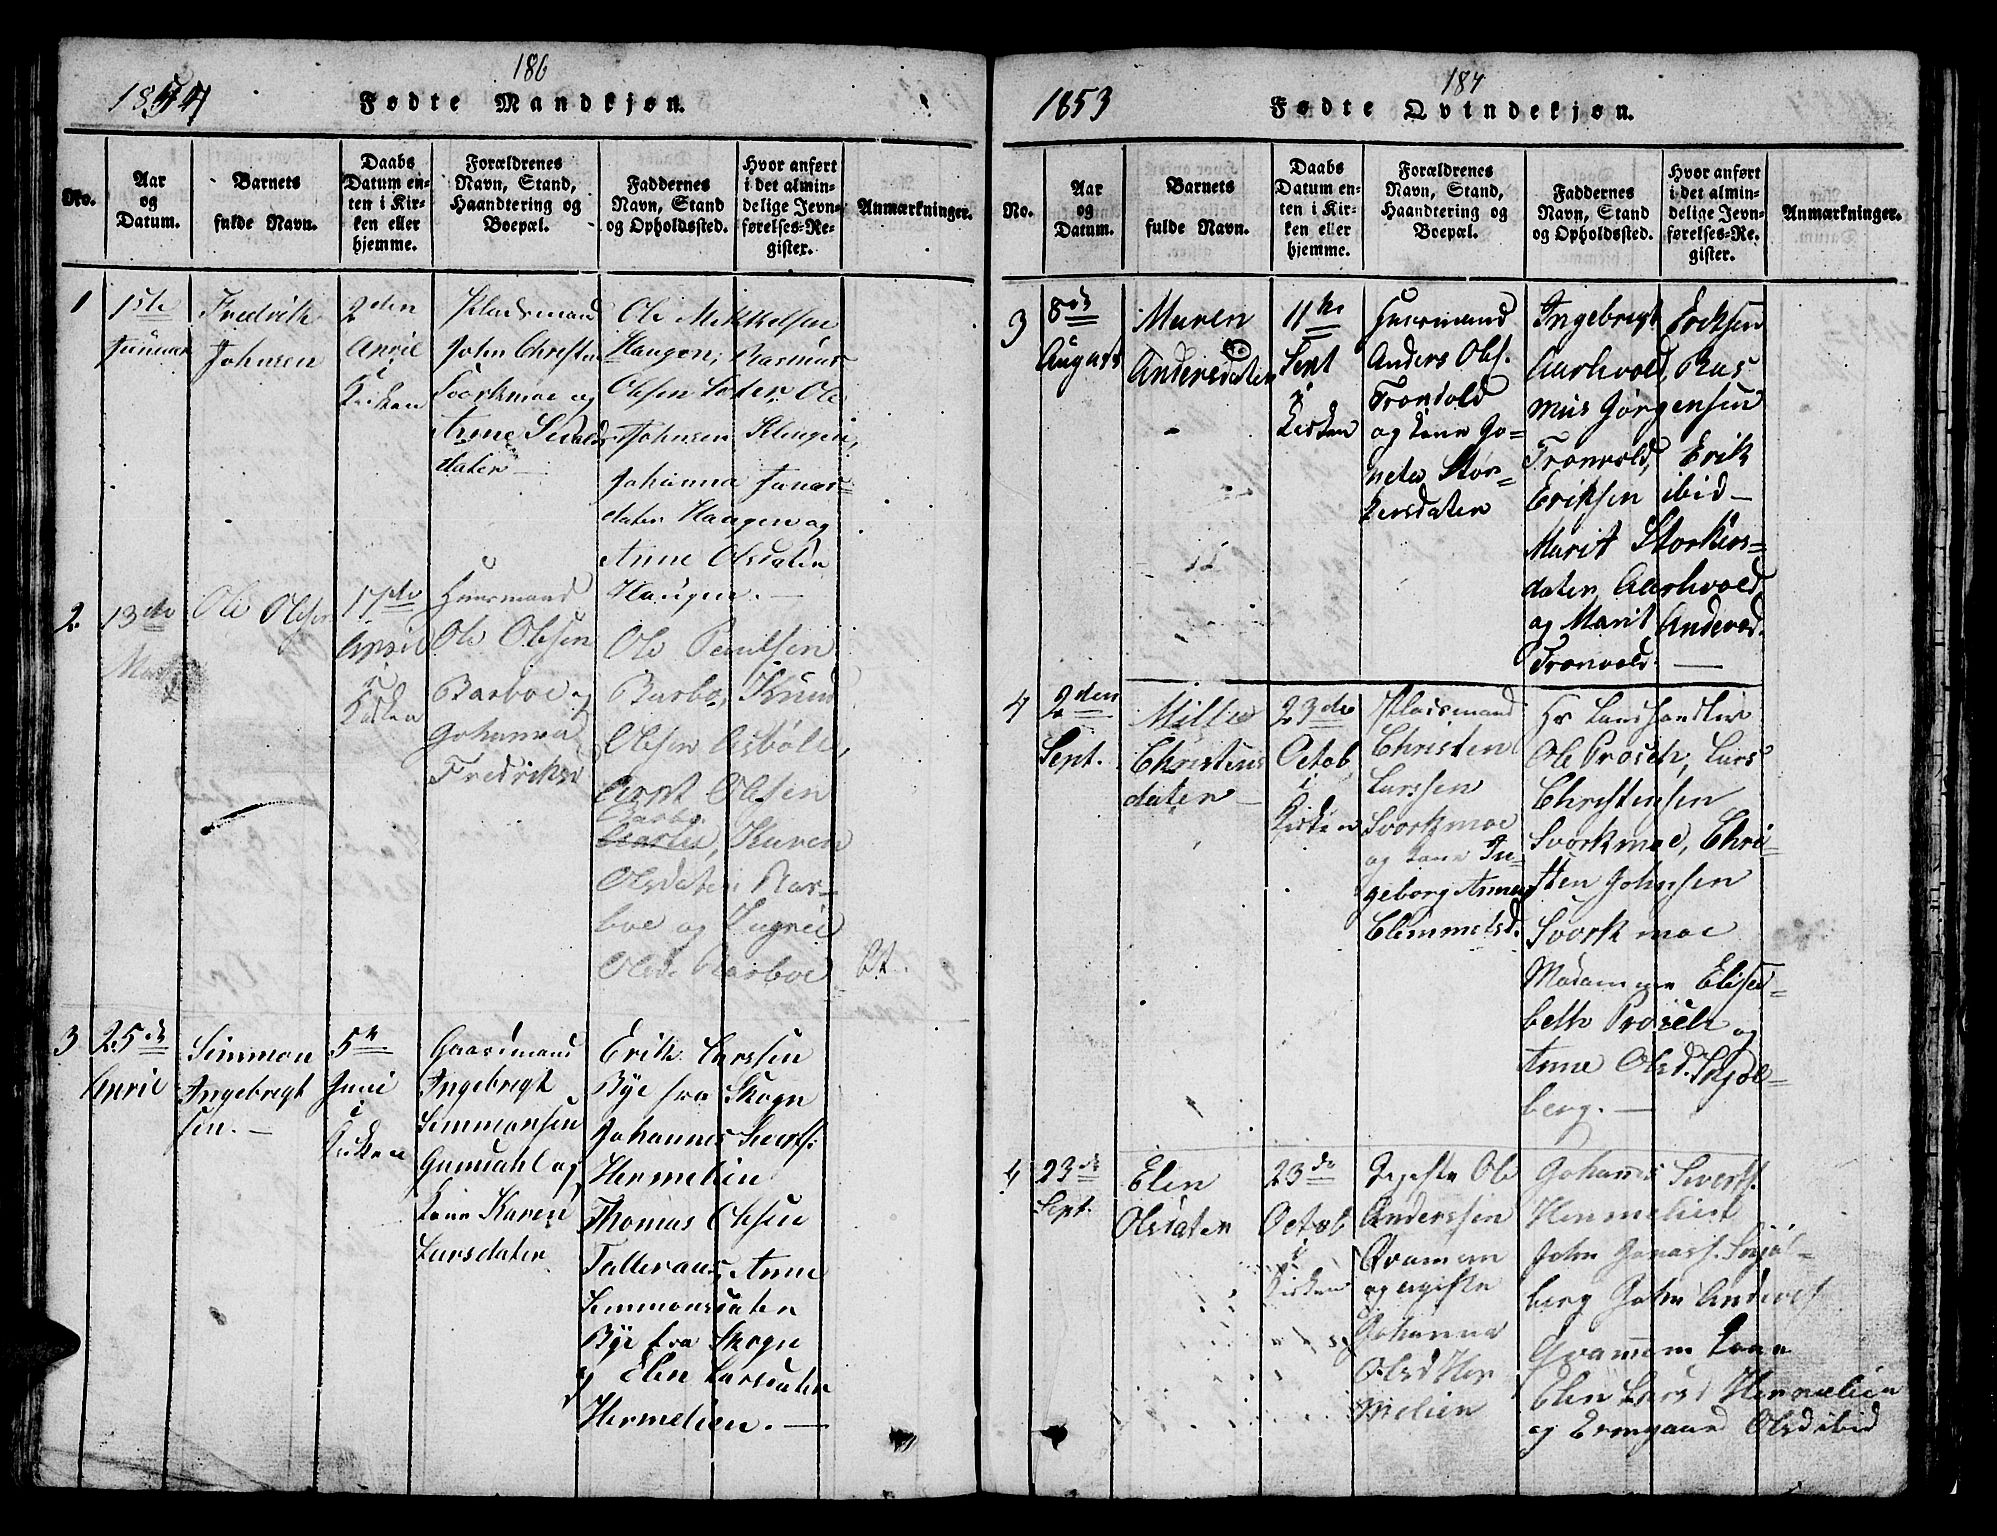 186
1854
Fødte Mandkjøn.
No.
Aar
og
Datum.
Barnets
fulde Navn.
Daabs
Datum en-
ten i Kir-
ken eller
hjemme.
Forældrenes
Navn, Stand,
Haandtering og
Boepæl.
Faddernes
Navn, Stand
og Opholdssted.
Hvor anført
i det almin-
delige Jevn-
førelses-Re-
gister.
Anmærkninger.
1
1ste
Januar
Fredrik
Johnsen
2den
April
i
Kirken
Pladsmand
John Christen
Svorkmoe og
Anne Sivalds
daten
Ole Mikkelsen
Haugen, Rasmus
Olsen Ole
Johnsen Klingen,
Johanna Jonas-
daten Haugen og
Anne Olsdaten
Haugen. —
2.
13de
Mart
Ole Olsen
17de
April
i
Kirken
Huusmand
Ole Olesen
Barboe og
Johanna
Fredriksd
Ole Paulsen
Barbo, Knud
Olesen Aisböle,
Arnt Olesen
Barbo
Karen
Olsdaten Bar-
boe og Ingrie
Olsd. Barboe
3
25de
April
Simmon
Ingebregt
sen. —
5te
Juni
i
Kirken
Gaardmand
Ingebregt
Simmonsen
Gumdahl og
Kone Karen
Larsdaten
Erik Larssen
Bye fra Skogn
Johannes Sivertss.
Hermelien
Thomas Olesen
Tølleraas, Anne
Simmonsdaten
Bye fra Skogn
Elen Larsdaten
Hermelien. —
187
1853
Fødte Qvindekjøn.
No.
Aar
og
Datum.
Barnets
fulde Navn.
Daabs
Datum en-
ten i Kir-
ken eller
hjemme.
Forældrenes
Navn, Stand,
Haandtering og
Boepæl.
Faddernes
Navn, Stand
og Opholdssted.
Hvor anført
i det almin-
delige Jevn-
førelses-Re-
gister.
Anmærkninger.
3
8de
August
Maren
Andersdaten
11te
Sept
i
Kirken
Huusmand
Anders Ols.
Tronvold
og Kone Go-
neta Stor-
kersdaten
Ingebrigt Eriksen
Aarhvold, Ras
mus Jørgensen
Tronvold, Erik
Eriksen ibid —
Marit Storkers-
daten Aarhvold
og Marit Andersd.
Tronvold. —
4
2den
Sept.
Mille
Christens
daten —
23de
Octob
i
Kirken
Pladsmand
Christen
Larssen
Svorkmoe
og Kone In-
geborg Anna
Clemmetsd.
Hr Landhandler
Ole Prøsch, Lars
Christensen
Svorkmoe, Chri-
sten Johnsen
Svorkmoe
Madamme Elisa-
beth Prøsch og
Anne Olsd. Skjøl-
berg. —
4
23de
Sept.
Elen
Olsdaten
23de
Octob
i
Kirken
Ugifte Ole
Anderssen
Qvammen
og ugifte
Johanna
Olsd Her
melien
Johannes Sivertss.
Hermelien
John Jonass. Skjøl-
berg John Anders
Qvammen Kone
Elen Larsd Hermelien
og Ermgaard Olsd ibid